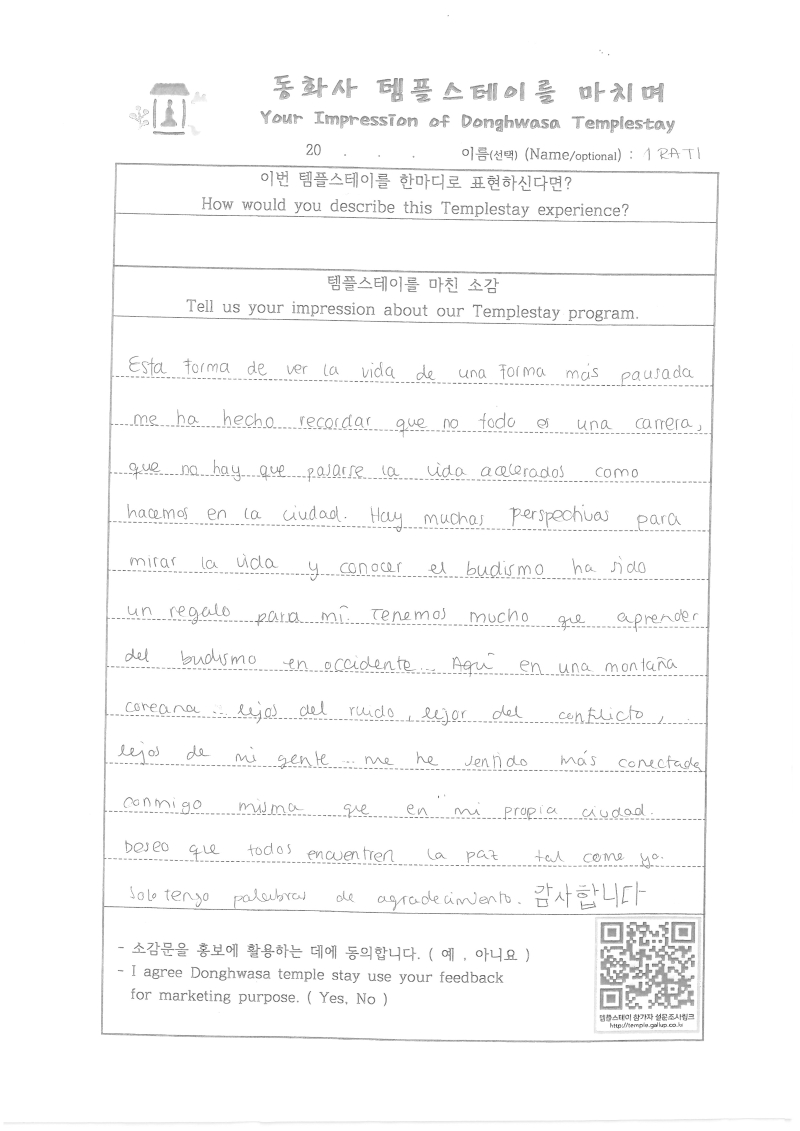 동화사 템플스테이를 마치며
Your Impression of Donghwasa Templestay
20 . . . 이름(선택) (Name/optional) : IRATI
이번 템플스테이를 한마디로 표현하신다면?
How would you describe this Templestay experience?
템플스테이를 마친 소감
Tell us your impression about our Templestay program.
Esta forma de ver la vida de una forma más pausada
me ha hecho recordar que no todo es una carrera,
que no hay que pasarse la vida acelerados como
hacemos en la ciudad. Hay muchas perspectivas para
mirar la vida y conocer el budismo ha sido
un regalo para mí. Tenemos mucho que aprender
del budismo en occidente... Aquí en una montaña
coreana... lejos del ruido, lejos del conflicto,
lejos de mi gente... me he sentido más conectada
conmigo misma que en mi propia ciudad.
Deseo que todos encuentren la paz tal como yo.
Solo tengo palabras de agradecimiento. 감사합니다
- 소감문을 홍보에 활용하는 데에 동의합니다. ( 예 , 아니요 )
- I agree Donghwasa temple stay use your feedback
for marketing purpose. ( Yes, No )
템플스테이 참가자 설문조사링크
http://temple.gallup.co.kr